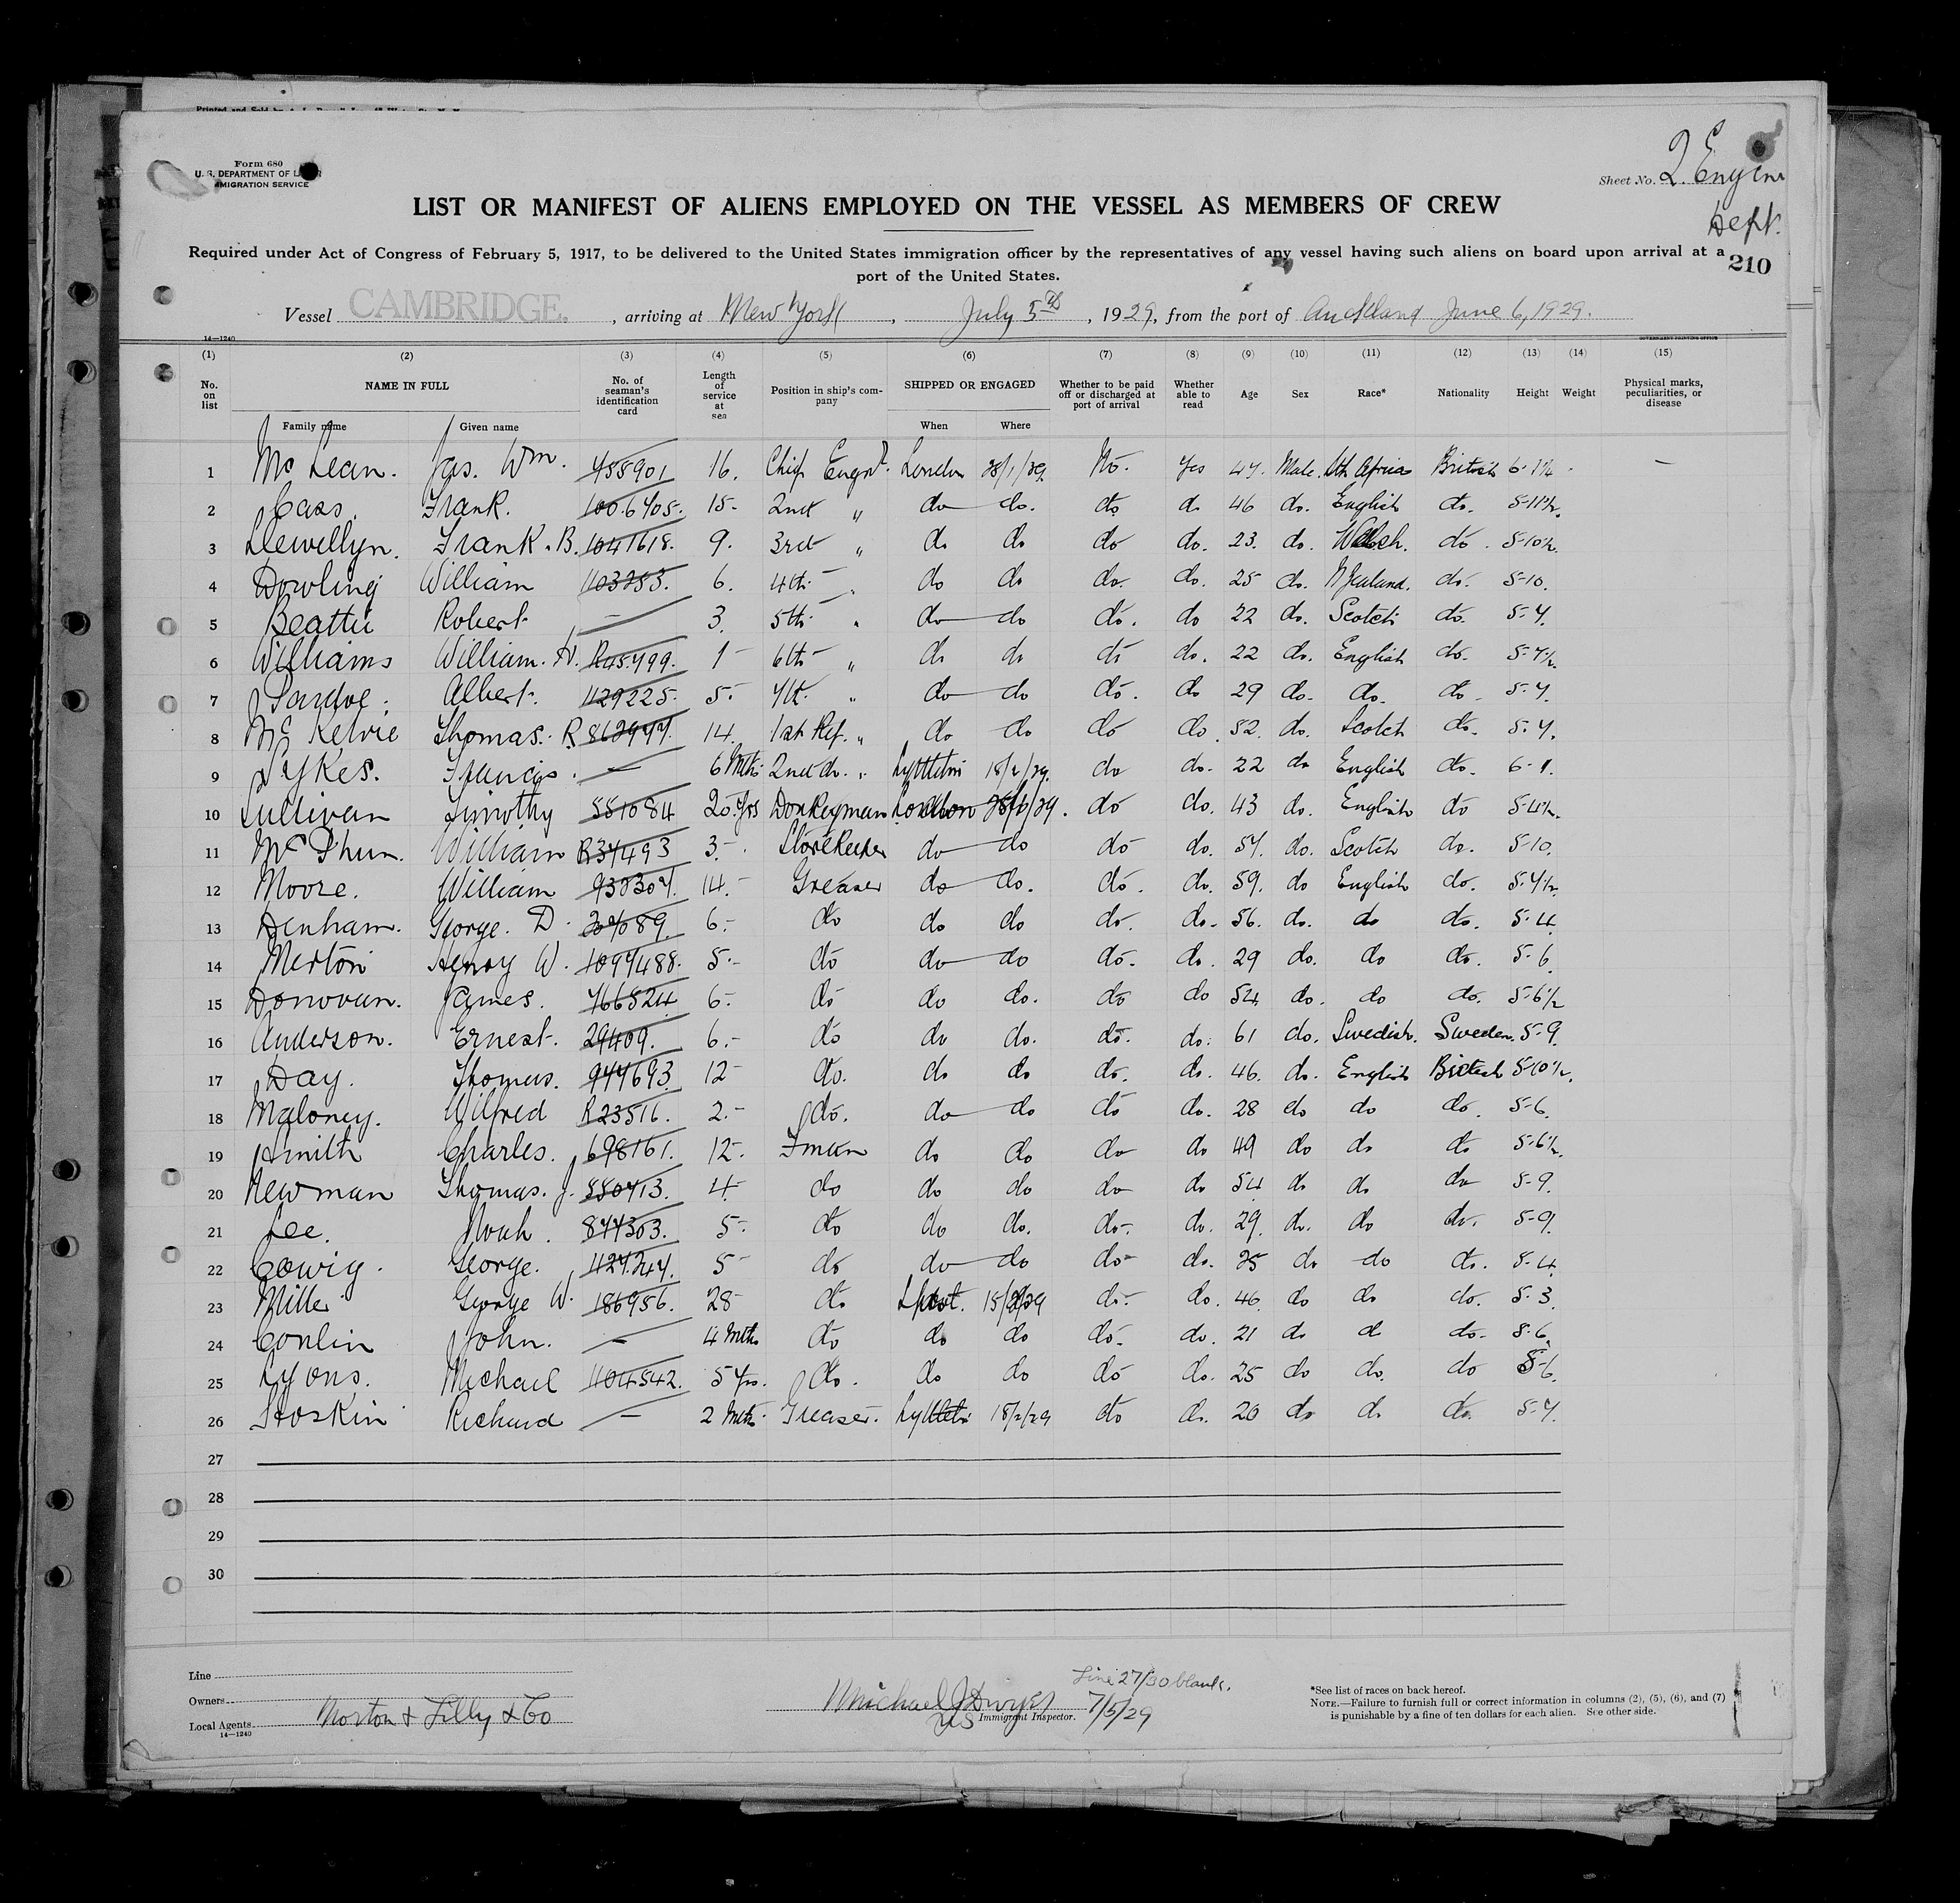 Form 680
U. S. DEPARTMENT OF LABOR
IMMIGRATION SERVICE
Sheet No. 2 Engine
Dept.
LIST OR MANIFEST OF ALIENS EMPLOYED ON THE VESSEL AS MEMBERS OF CREW
Required under Act of Congress of February 5, 1917, to be delivered to the United States immigration officer by the representatives of any vessel having such aliens on board upon arrival at a
port of the United States.
210
Vessel CAMBRIDGE. , arriving at New York , July 5th , 1929, from the port of Auckland June 6, 1929.
14—1240 GOVERNMENT PRINTING OFFICE
(1) (2) (3) (4) (5) (6) (7) (8) (9) (10) (11) (12) (13) (14) (15)
No. on list NAME IN FULL No. of seaman's identification card Length of service at sea Position in ship's company SHIPPED OR ENGAGED Whether to be paid off or discharged at port of arrival Whether able to read Age Sex Race* Nationality Height Weight Physical marks, peculiarities, or disease
Family name Given name When Where
1 Mc Lean. Jas. Wm. 16. Chief Engr. London 28/1/29 No. Yes 47. Male. Sth Africa British —
2 Cass. Frank. 1006705. 15- 2nd " do do. do do 46 do. English do. 5-11½.
3 Llewellyn. Frank. B. 1041618. 9. 3rd " do do do do. 23. do. Welsh. do. 5-10½.
4 Dowling William 1103253. 6. 4th - " do do do. do. 25 do. N Zealand. do. 5-10.
5 Beattie Robert — 3. 5th - " do do do. do 22 do. Scotch do. 5-7.
6 Williams William. H. R45799. 1 - 6th - " do do do do. 22 do. English do. 5-7½.
7 Albert. 1129225. 5. 7th. " do do do. do 29 do. do. do. 5-7.
8 Mc Kelvie Thomas. R. 14. 1st Ref. " do do do do 52. do. Scotch do. 5-7.
9 Sykes. Francis. — 6 Mths 2nd do. " Lyttelton 18/2/29. do do. 22 do English do. 6-1.
10 Sullivan Timothy 551084 20 Yrs Donkeyman London 28/1/29. do do. 43 do. English do
11 William R37493 3. Storekeeper do do do do. 57. do. Scotch do. 5-10.
12 Moore. William 14. Greaser do do. do. do. 59. do English do. 5-7½.
13 Denham. George. D. 6. do do do do. do. 56. do. do do. 5-4.
14 Merton Henry W. 1097488. 5. do do do do. do. 29 do. do do. 5-6.
15 Donovan. James. 766524. 6. do do do. do do 54 do. do do. 5-6½
16 Anderson. Ernest. 29409. 6. do do do. do. do. 61 do. Swedish. Sweden. 5-9.
17 Day. Thomas. 977693. 12 do. do do do. do. 46. do. English British 5-10½.
18 Maloney. Wilfred R23516. 2. do. do do do do. 28 do do do. 5-6.
19 Smith Charles. 698161. 12. Fman do do do do 49 do do do 5-6½.
20 Newman Thomas. J. 550713. 4 do do do do do 54 do do do 5-9.
21 Lee. Noah. 877303. 5. do do do. do. do. 29. do. do do. 5-9.
22 Cowig. George. 1127247. 5 do do do do do. 25 do do do. 5-4.
23 Miller George W. 186956. 28 do Lpool. do. do. 46. do do do. 5-3.
24 Conlin John. — 4 Mths do do do do. do. 21 do do do. 5-6.
25 Lyons. Michael 1104542. 5 Yrs. do. do do do do. 25 do do. do 5-6.
26 Hoskin Richard — 2 Mths Greaser. Lyttelton 18/2/29 do do. 20 do do. do. 5-7.
27
28
29
30
Line 27/30 blank.
Line
Owners
Local Agents Norton & Lilly & Co
14—1240
Michael J Dwyer 7/5/29
US Immigrant Inspector.
*See list of races on back hereof.
NOTE.—Failure to furnish full or correct information in columns (2), (5), (6), and (7)
is punishable by a fine of ten dollars for each alien. See other side.